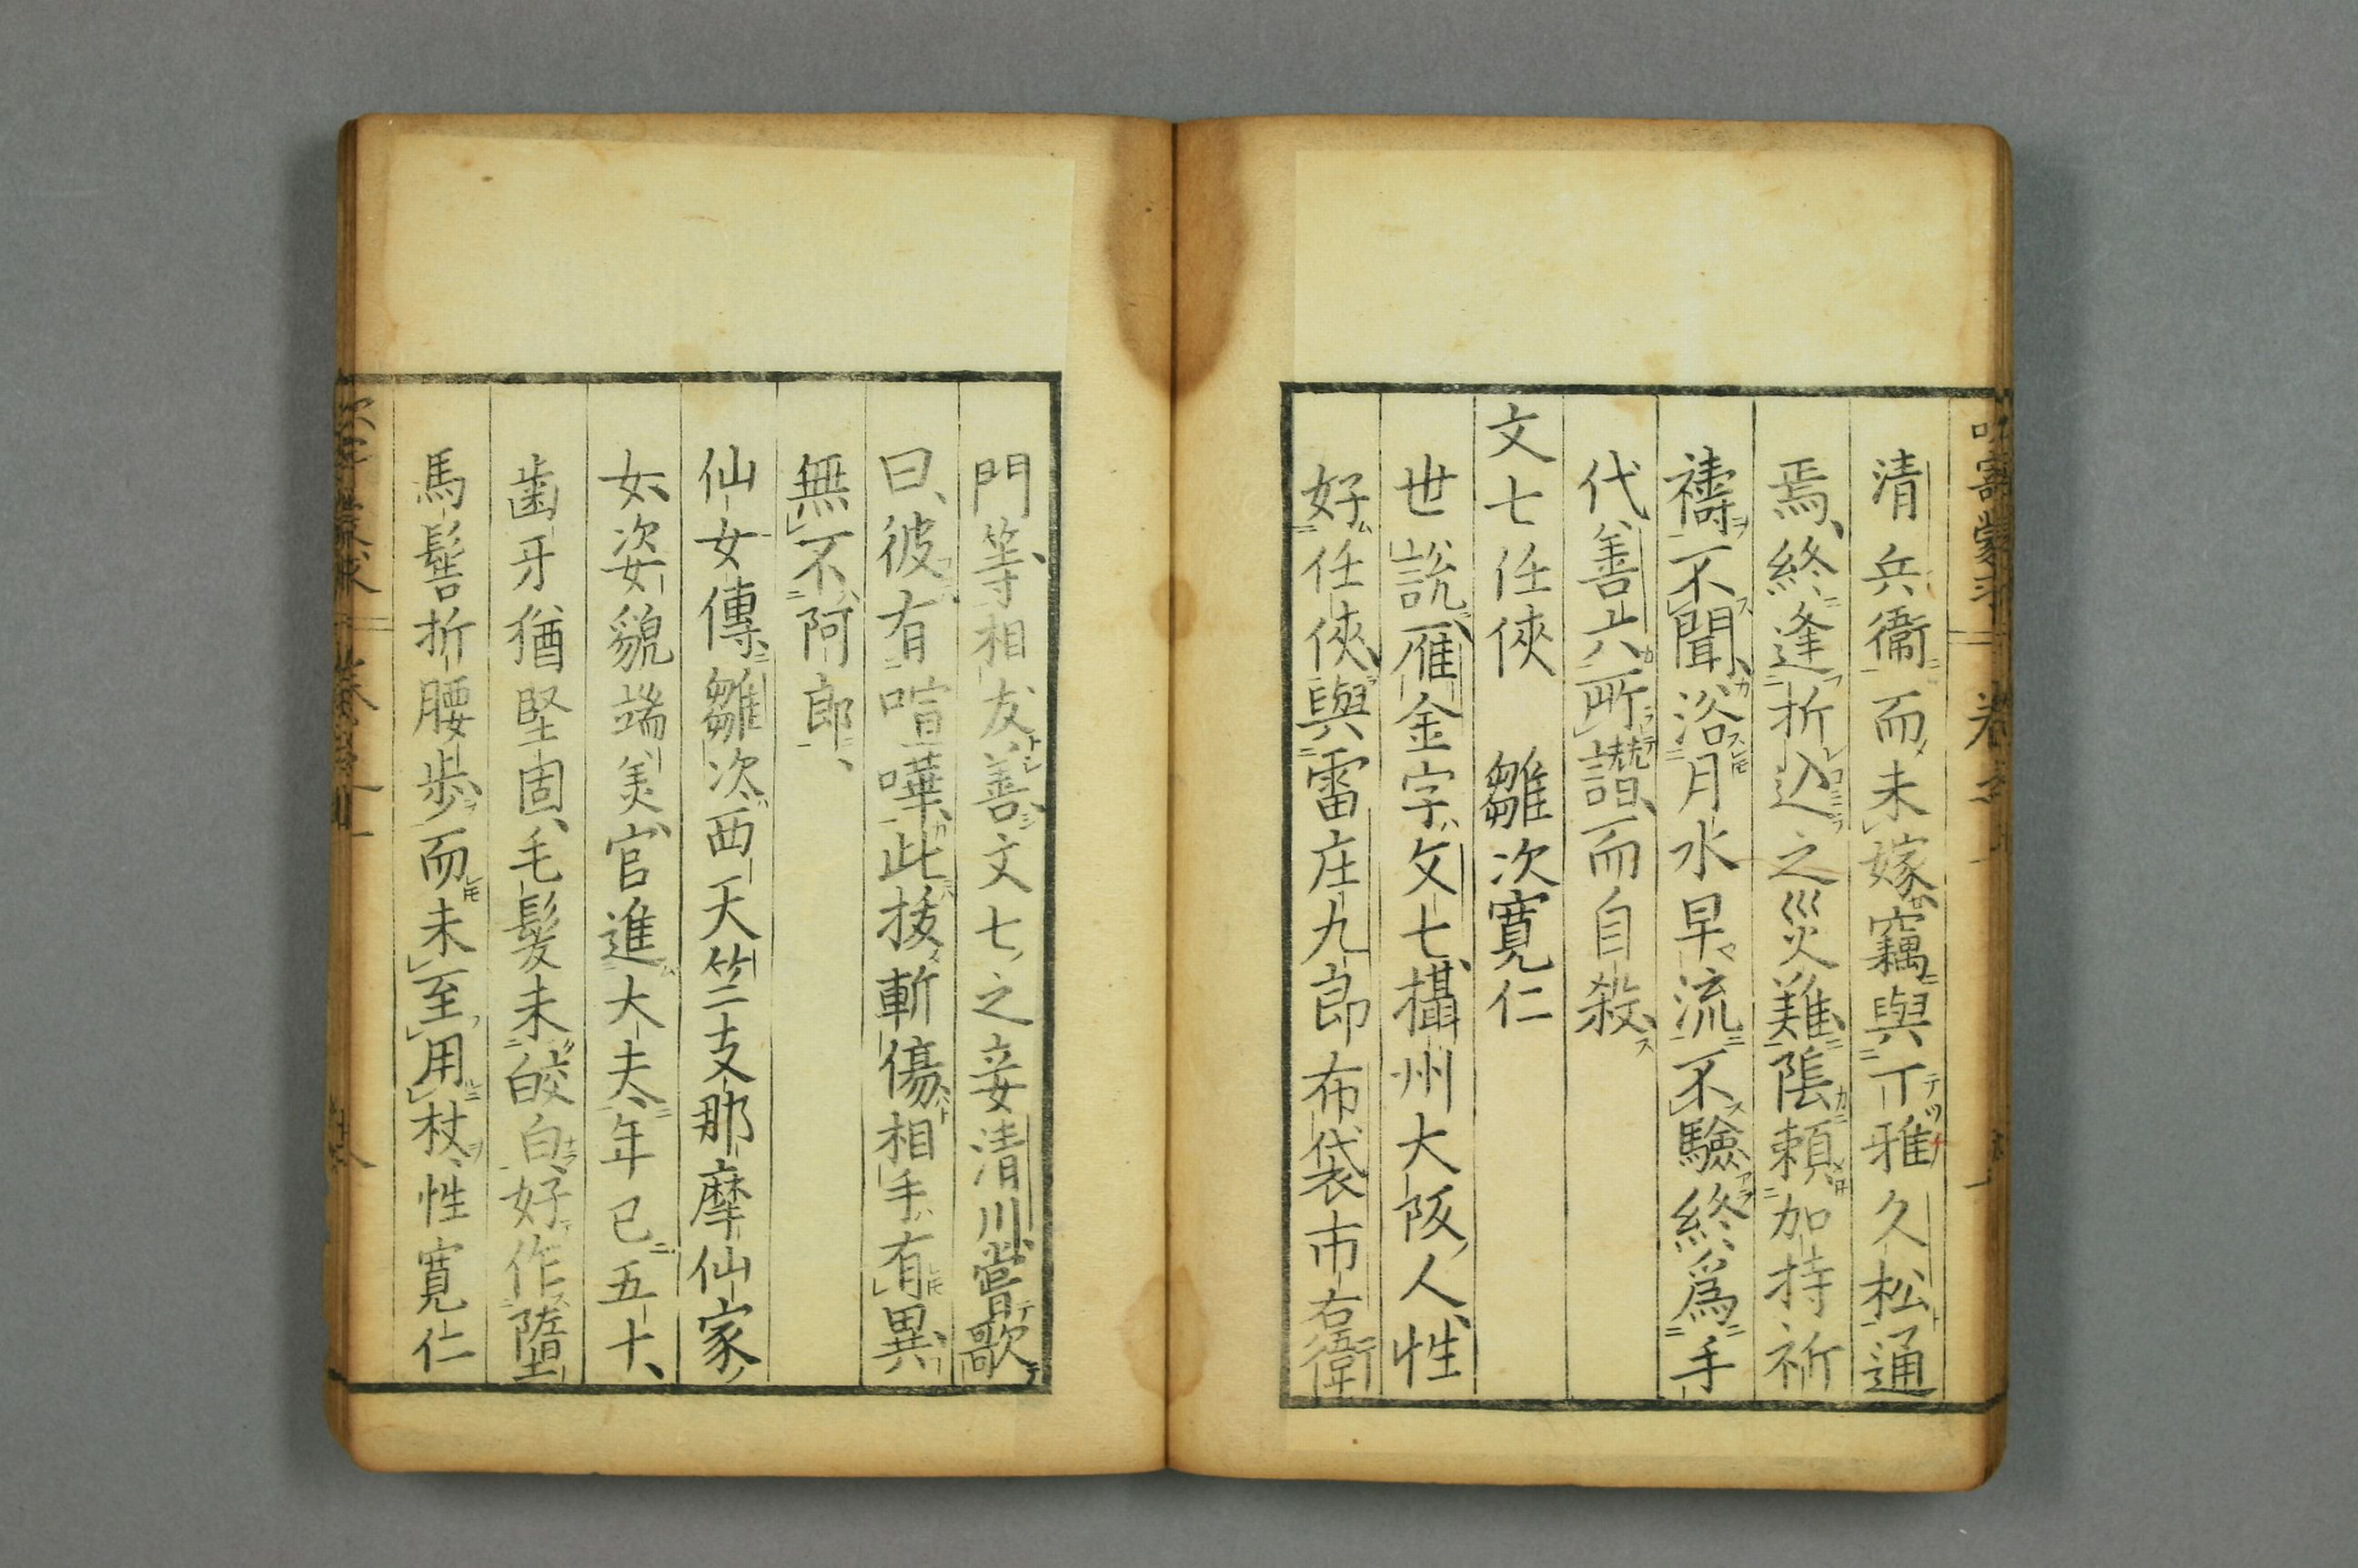 清兵衞而未嫁竊與丁雅久松通
焉終逢折込之災難陰賴加持祈
禱不聞浴月水早流不驗終爲手
代善六所讃而自殺
文七任俠 雛次寬仁
世說雁金字文七攝州大阪人性
好任俠與雷庄九郎布袋市右衛
門等相友善文七之妾清川嘗歌
曰彼有喧嘩此拔斬傷相手有異
無不阿郎
仙女傳雛次西天竺支那摩仙家
女姿貌端美官進大夫年已五十
齒牙猶堅固毛髮未皎白好作墮
馬髻折腰步而未至用杖性寬仁